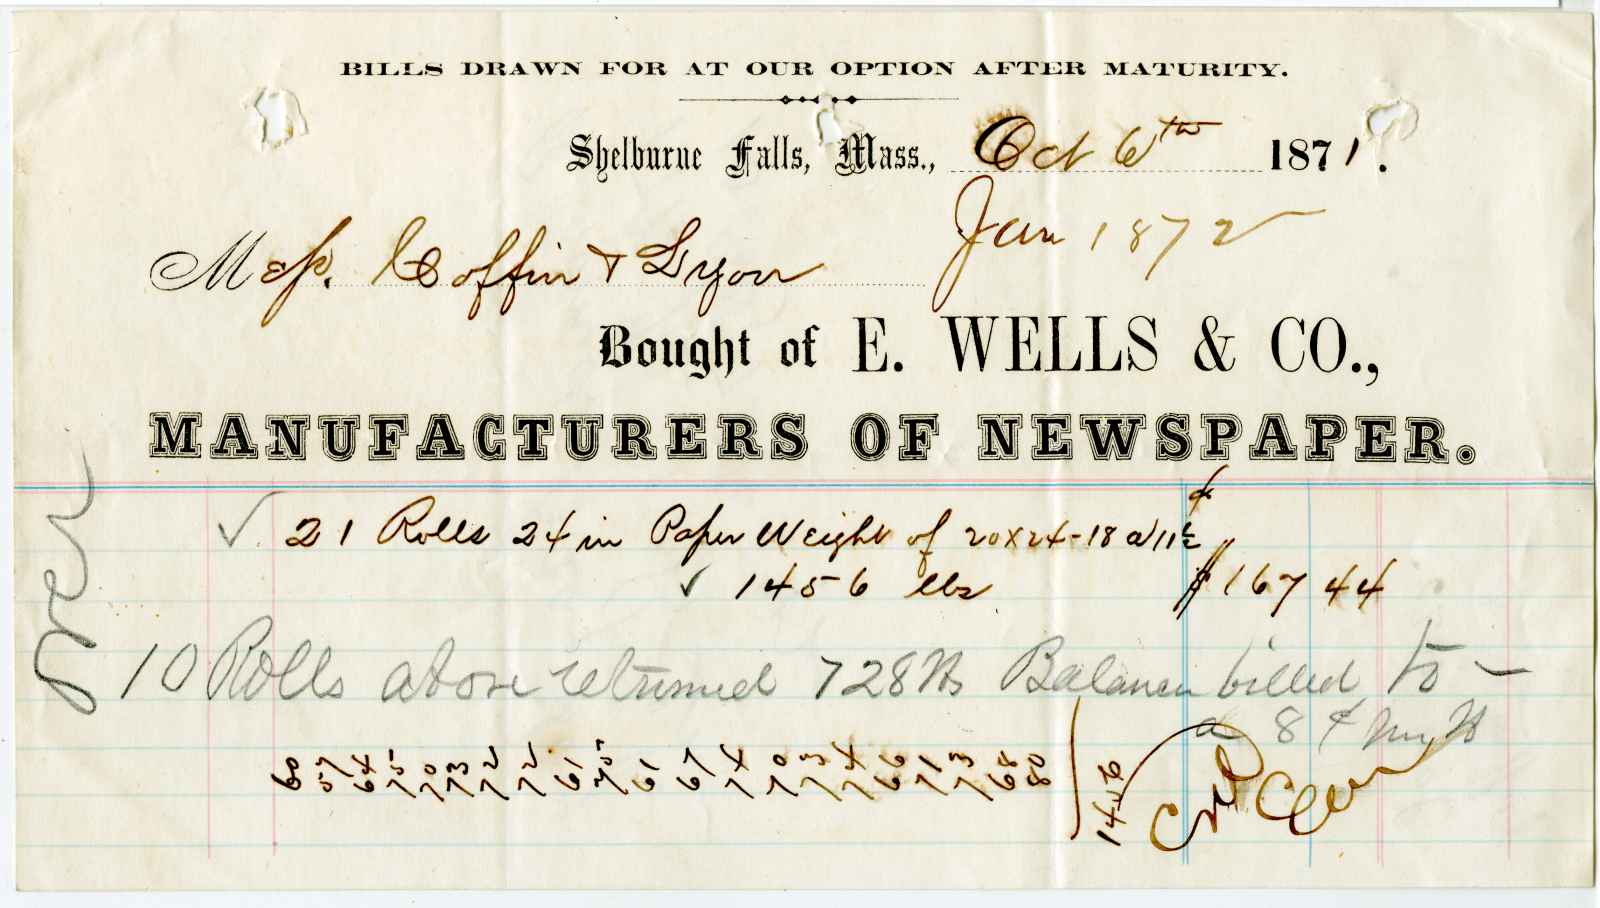 BILLS DRAWN FOR AT OUR OPTION AFTER MATURITY.
Shelburne Falls, Mass., Oct 6th 1871.
Jan 1872
Mess. Coffin & Lyon
Bought of E. WELLS & CO.,
MANUFACTURERS OF NEWSPAPER.
21 Rolls 24 in Paper Weight of 20x24-18 a 11½ ¢
1456 lbs $167 44
10 Rolls above returned 728 lbs Balance billed to
a 8 ¢
1456